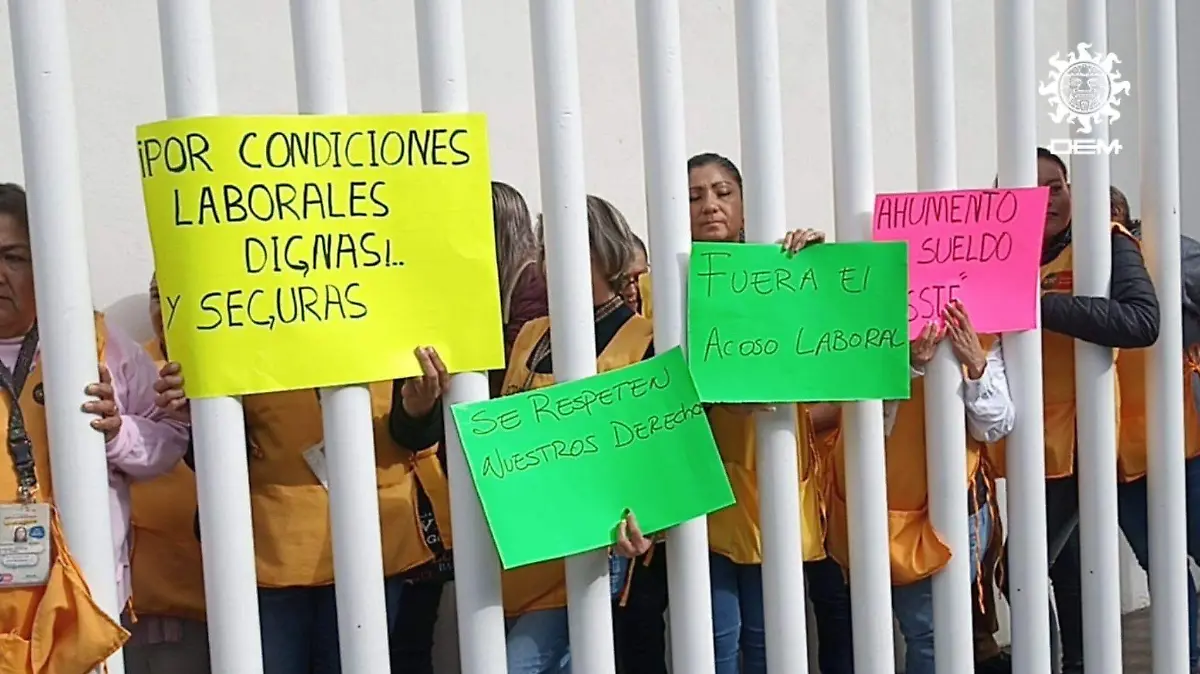 ¡POR CONDICIONES
LABORALES
DIGNAS!..
Y SEGURAS
SE RESPETEN
NUESTROS DERECHO
FUERA El
ACOSO LABORAL
AHUMENTO
SUELDO
SSTE"
OEM